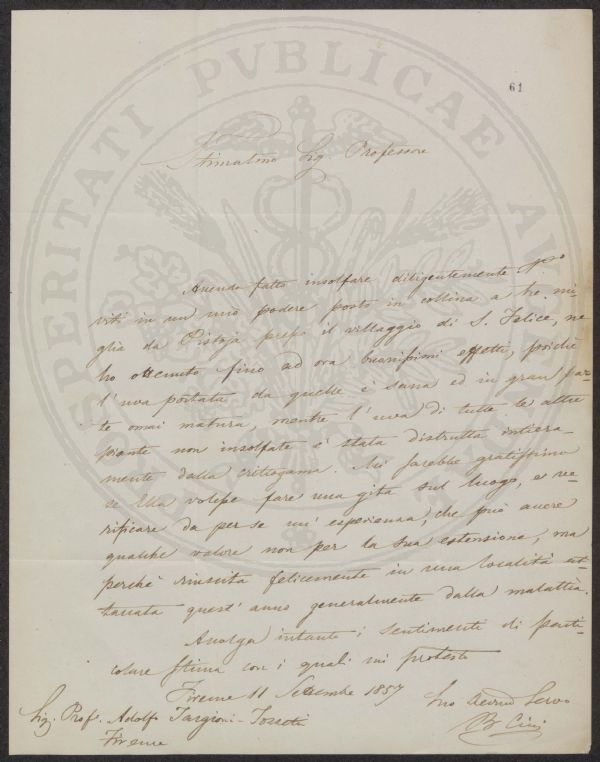 PROSPERITATI PVBLICAE AVGENDAE
61
Stimatmo Sig Professore
Avendo fatto insolfare diligentemente
viti in un mio podere posto in collina a tre mi-
glia da Pistoja presso il villaggio di S. Felice, ne
ho ottenuto fino ad ora buonissimi effetti, poichè
l'uva portata da quelle è sana ed in gran par-
te omai matura, mentre l'uva di tutte le altre
piante non insolfate è stata distrutta intiera-
mente dalla crittogama. Mi sarebbe gratissimo
se Ella volesse fare una gita sul luogo, e ve-
rificare da per se un' esperienza, che può avere
qualche valore non per la sua estensione, ma
perchè riuscita felicemente in una località at-
taccata quest' anno generalmente dalla malattia.
Accolga intanto i sentimenti di parti-
colare stima con i quali mi protesto
Firenze 11 Settembre 1857
Suo Servo
Cini
Sig. Prof. Adolfo Targioni-Tozzetti
Firenze